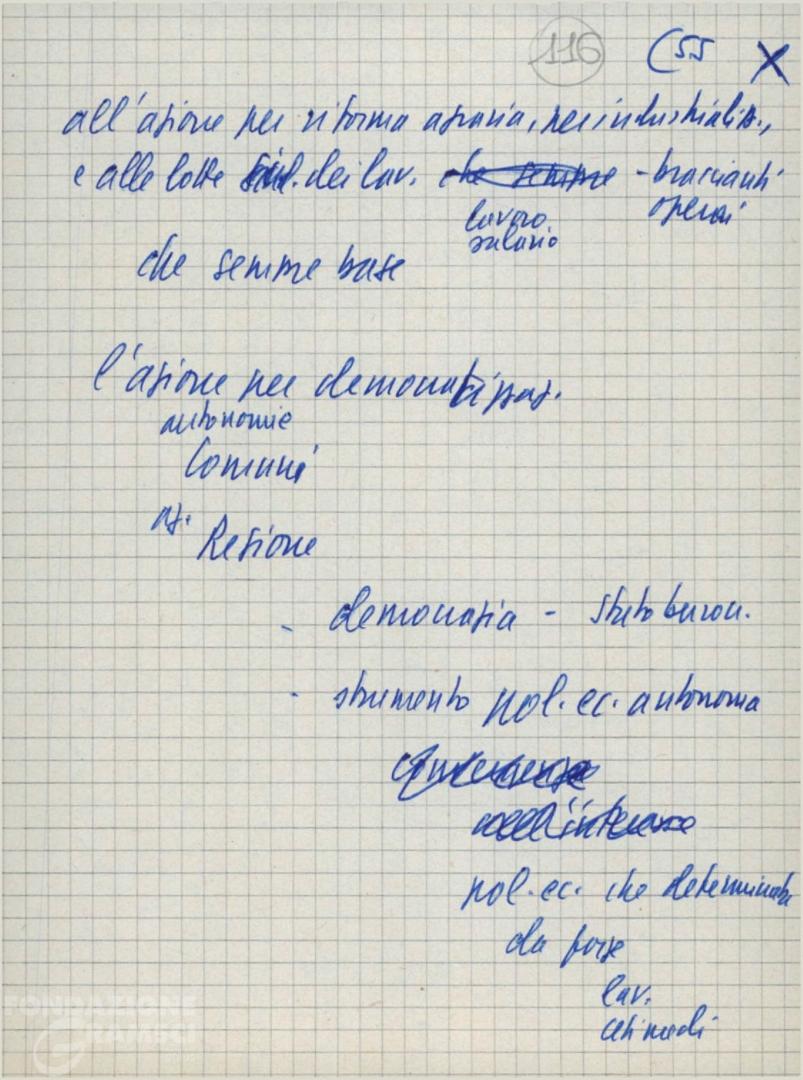 116 (55 X
all'azione per riforma agraria, per industrializ.,
e alle lotte sind. dei lav. che sempre - braccianti
lavoro operai
salario
che sempre base
l'azione per democratizzaz.
autonomie
Comuni
az.
Regione
- democrazia - stato buroc.
- strumento pol. ec. autonoma
nell'interesse
pol. ec. che determinata
da forze
lav.
ceti medi
FONDAZIONE
GRAMSCI